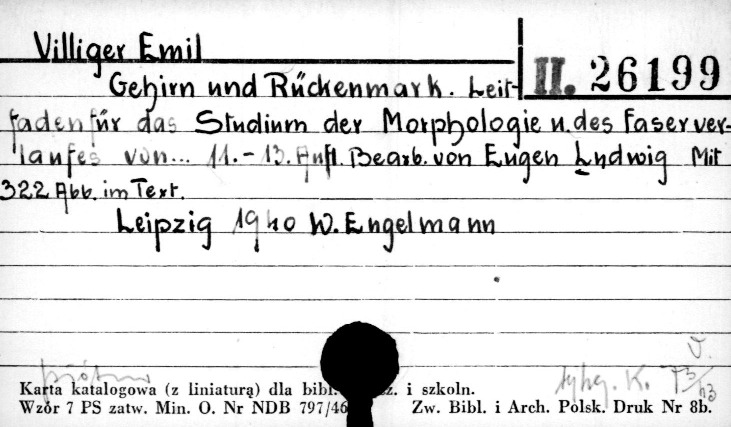 Villiger Emil
II. 26199
Gehirn und Rückenmark. Leit-
faden für das Studium der Morphologie u. des Faserver-
laufes von... 11.-13. Aufl. Bearb. von Eugen Ludwig Mit
322 Abb. im Text.
Leipzig 1940 W. Engelmann
V.
K.
Karta katalogowa (z liniaturą) dla bibl. i szkoln.
Wzór 7 PS zatw. Min. O. Nr NDB 797/46 Zw. Bibl. i Arch. Polsk. Druk Nr 8b.